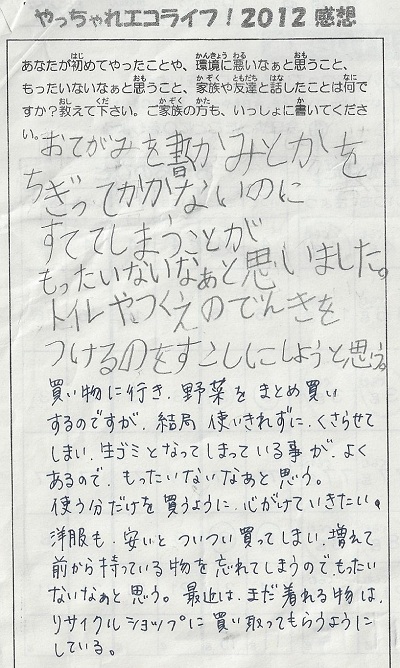 やっちゃれエコライフ！2012 感想
あなたが初めてやったことや、環境に悪いなぁと思うこと、
もったいないなぁと思うこと、家族や友達と話したことは何で
すか？教えて下さい。ご家族の方も、いっしょに書いてくださ
い。
おてがみを書かみとかを
ちぎってかかないのに
すててしまうことが
もったいないなぁと思いました。
トイレやつくえのでんきを
つけるのをすこしにしようと思う。
買い物に行き、野菜をまとめ買い
するのですが、結局使いきれずに、くさらせて
しまい、生ゴミとなってしまっている事が、よく
あるので、もったいないなあと思う。
使う分だけを買うように、心がけていきたい。
洋服も、安いとついつい買ってしまい、増えて
前から持っている物を忘れてしまうので、もったい
ないなぁと思う。最近は、まだ着れる物は、
リサイクルショップに買い取ってもらうように
している。